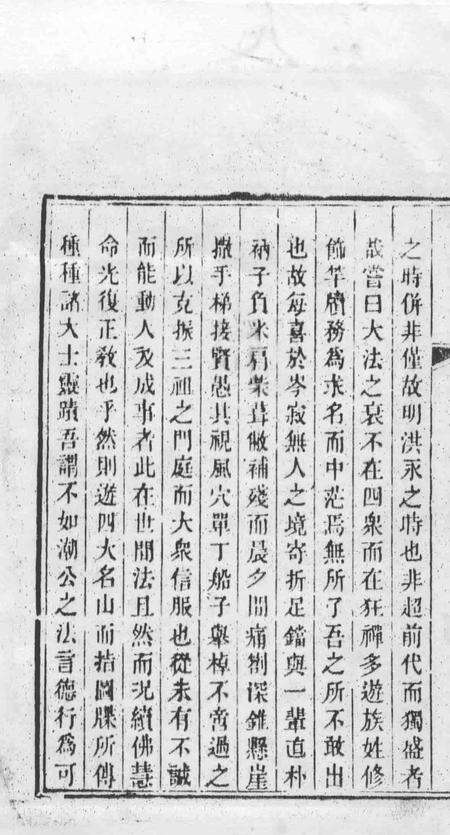 之時併非僅故明洪永之時也非超前代而獨盛者
哉嘗曰大法之衰不在四衆而在狂禪多遊族姓修
飾竿牘務為求名而中茫焉無所了吾之所不敢出
也故每喜於岑寂無人之境寄折足鐺與一輩直朴
衲子負米肩柴葺敝補殘而晨夕間痛劄深錐懸崖
撒手梯接賢愚其視風穴單丁船子舉棹不啻過之
所以克振三祖之門庭而大衆信服也從未有不誠
而能動人及成事者此在世間法且然而況續佛慧
命光復正教也乎然則遊四大名山而掿圖牒所傳
種種諸大士靈蹟吾謂不如潮公之法言德行為可